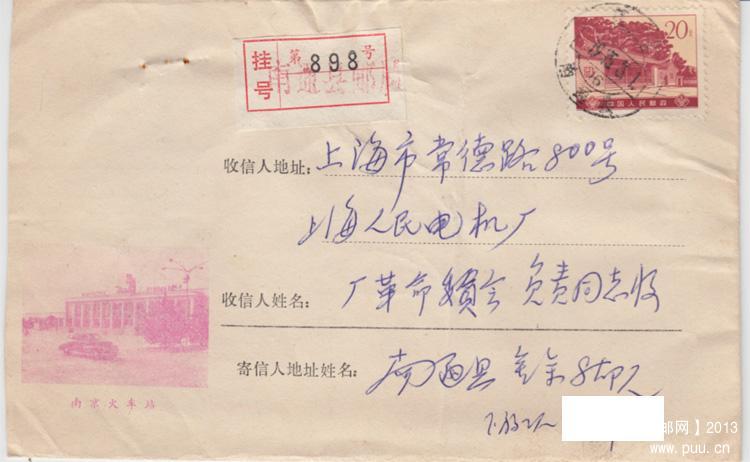 挂号
第898号
南通县邮局
20分
中国人民邮政
收信人地址：上海市常德路800号
上海人民电机厂
收信人姓名：厂革命委员会 负责同志收
寄信人地址姓名：南通县
南京火车站
邮网】2013
www.puu.cn